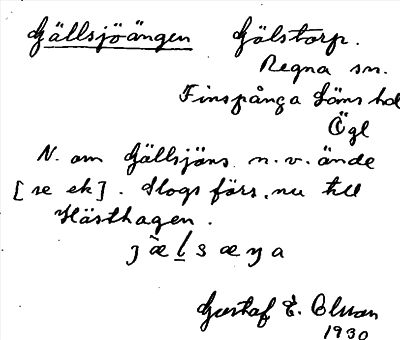 Gällsjöängen Gölstorp.
Regna sn.
Finspånga läns hd
Ögl
N. om Gällsjöns n.v. ände
[se ek]. Slogs förs, nu till
Hästhagen.
jæ̀l̲sæŋa
Gustaf E. Olsson
1930